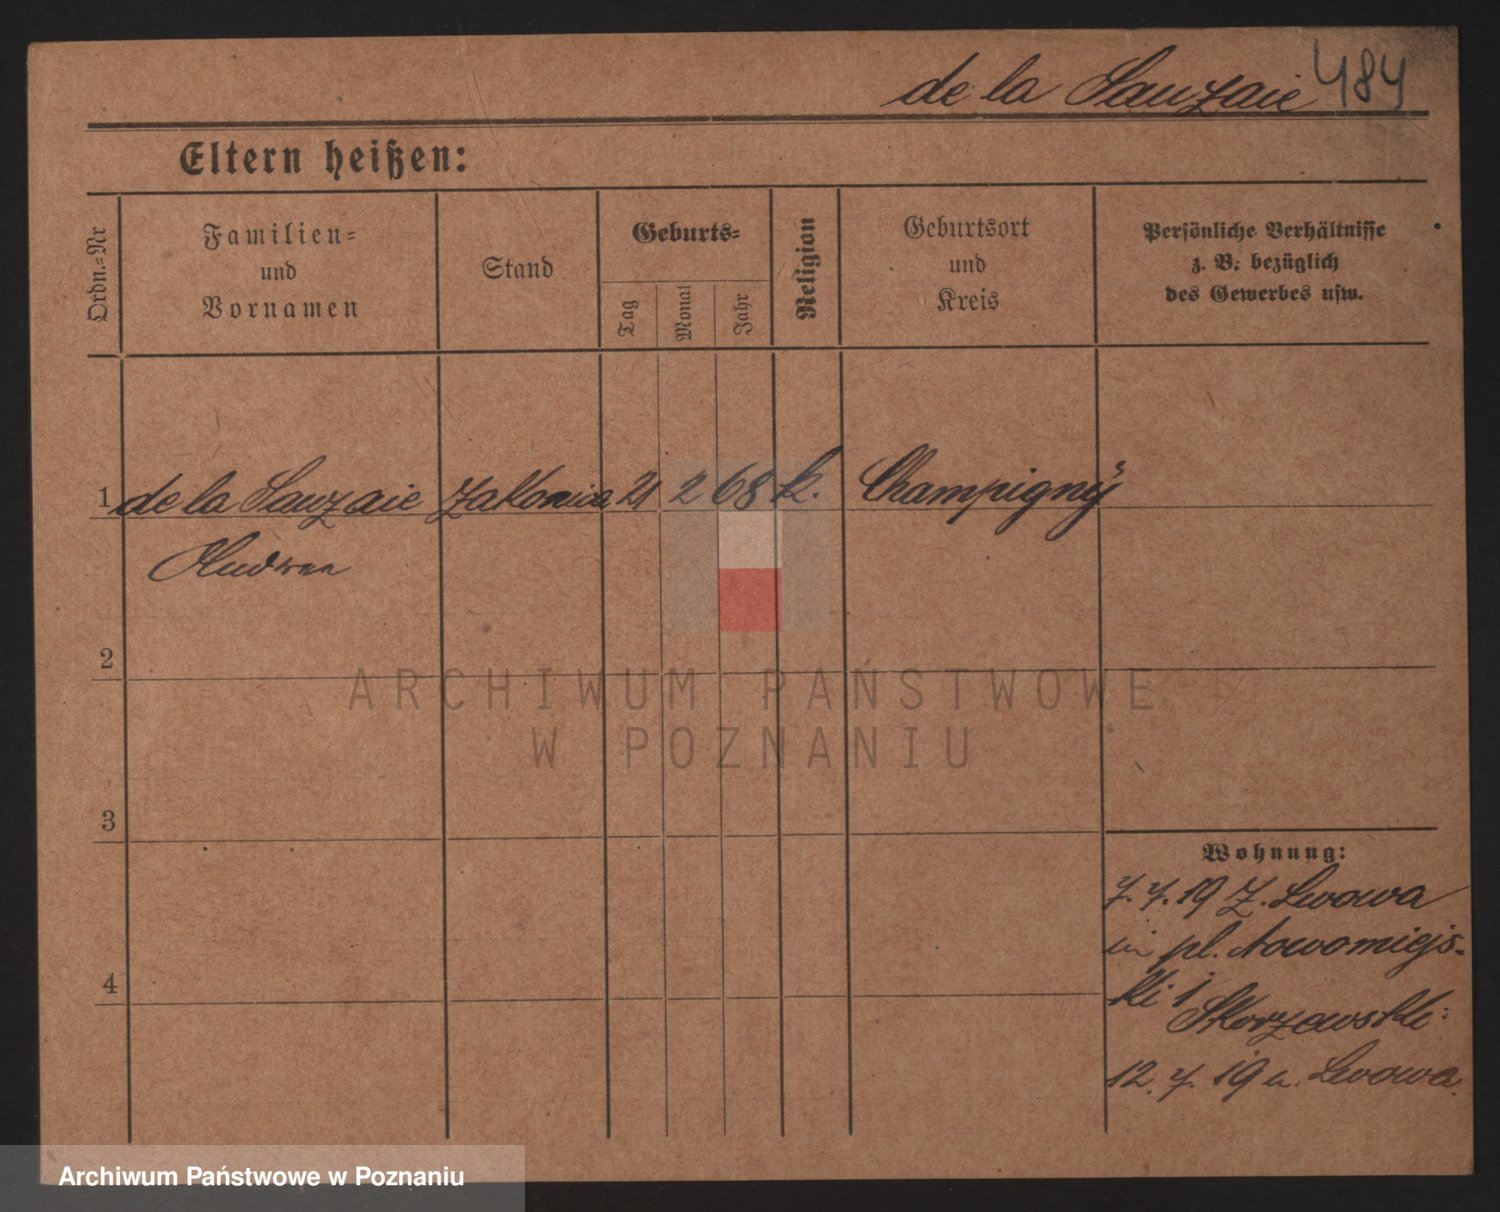 de la Sauzaie 484
Eltern heißen:
Ordn.-Nr
Familien-
und
Vornamen
Stand
Geburts-
Tag
Monat
Jahr
Religion
Geburtsort
und
Kreis
Persönliche Verhältnisse
z. B. bezüglich
des Gewerbes usw.
1 de la Sauzaie Zakonica 21 2 68 k. Champigny
2
3
4
Wohnung:
7. 7. 19 z. Lwowa
pl. Nowomiejs-
ki 1
Skorzewski
12. 7. 19 n. Lwowa
ARCHIWUM PAŃSTWOWE
W POZNANIU
Archiwum Państwowe w Poznaniu